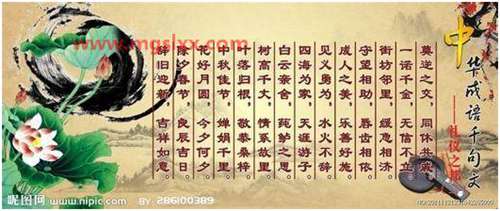 中华成语千句文
——礼仪之邦
莫逆之交，同休共戚。
一诺千金，无信不立。
街坊邻里，缓急相济。
守望相助，唇齿相依。
成人之美，乐善好施。
见义勇为，水火不辞。
四海为家，天涯游子。
白云亲舍，莼鲈之思。
树高千丈，情系故里。
叶落归根，敬恭桑梓。
中秋佳节，婵娟千里。
花好月圆，今夕何夕。
除夕春节，良辰吉日。
辞旧迎新，吉祥如意。
www.mgslxx.com
昵图网
www.nipic.com
BY: 286100389